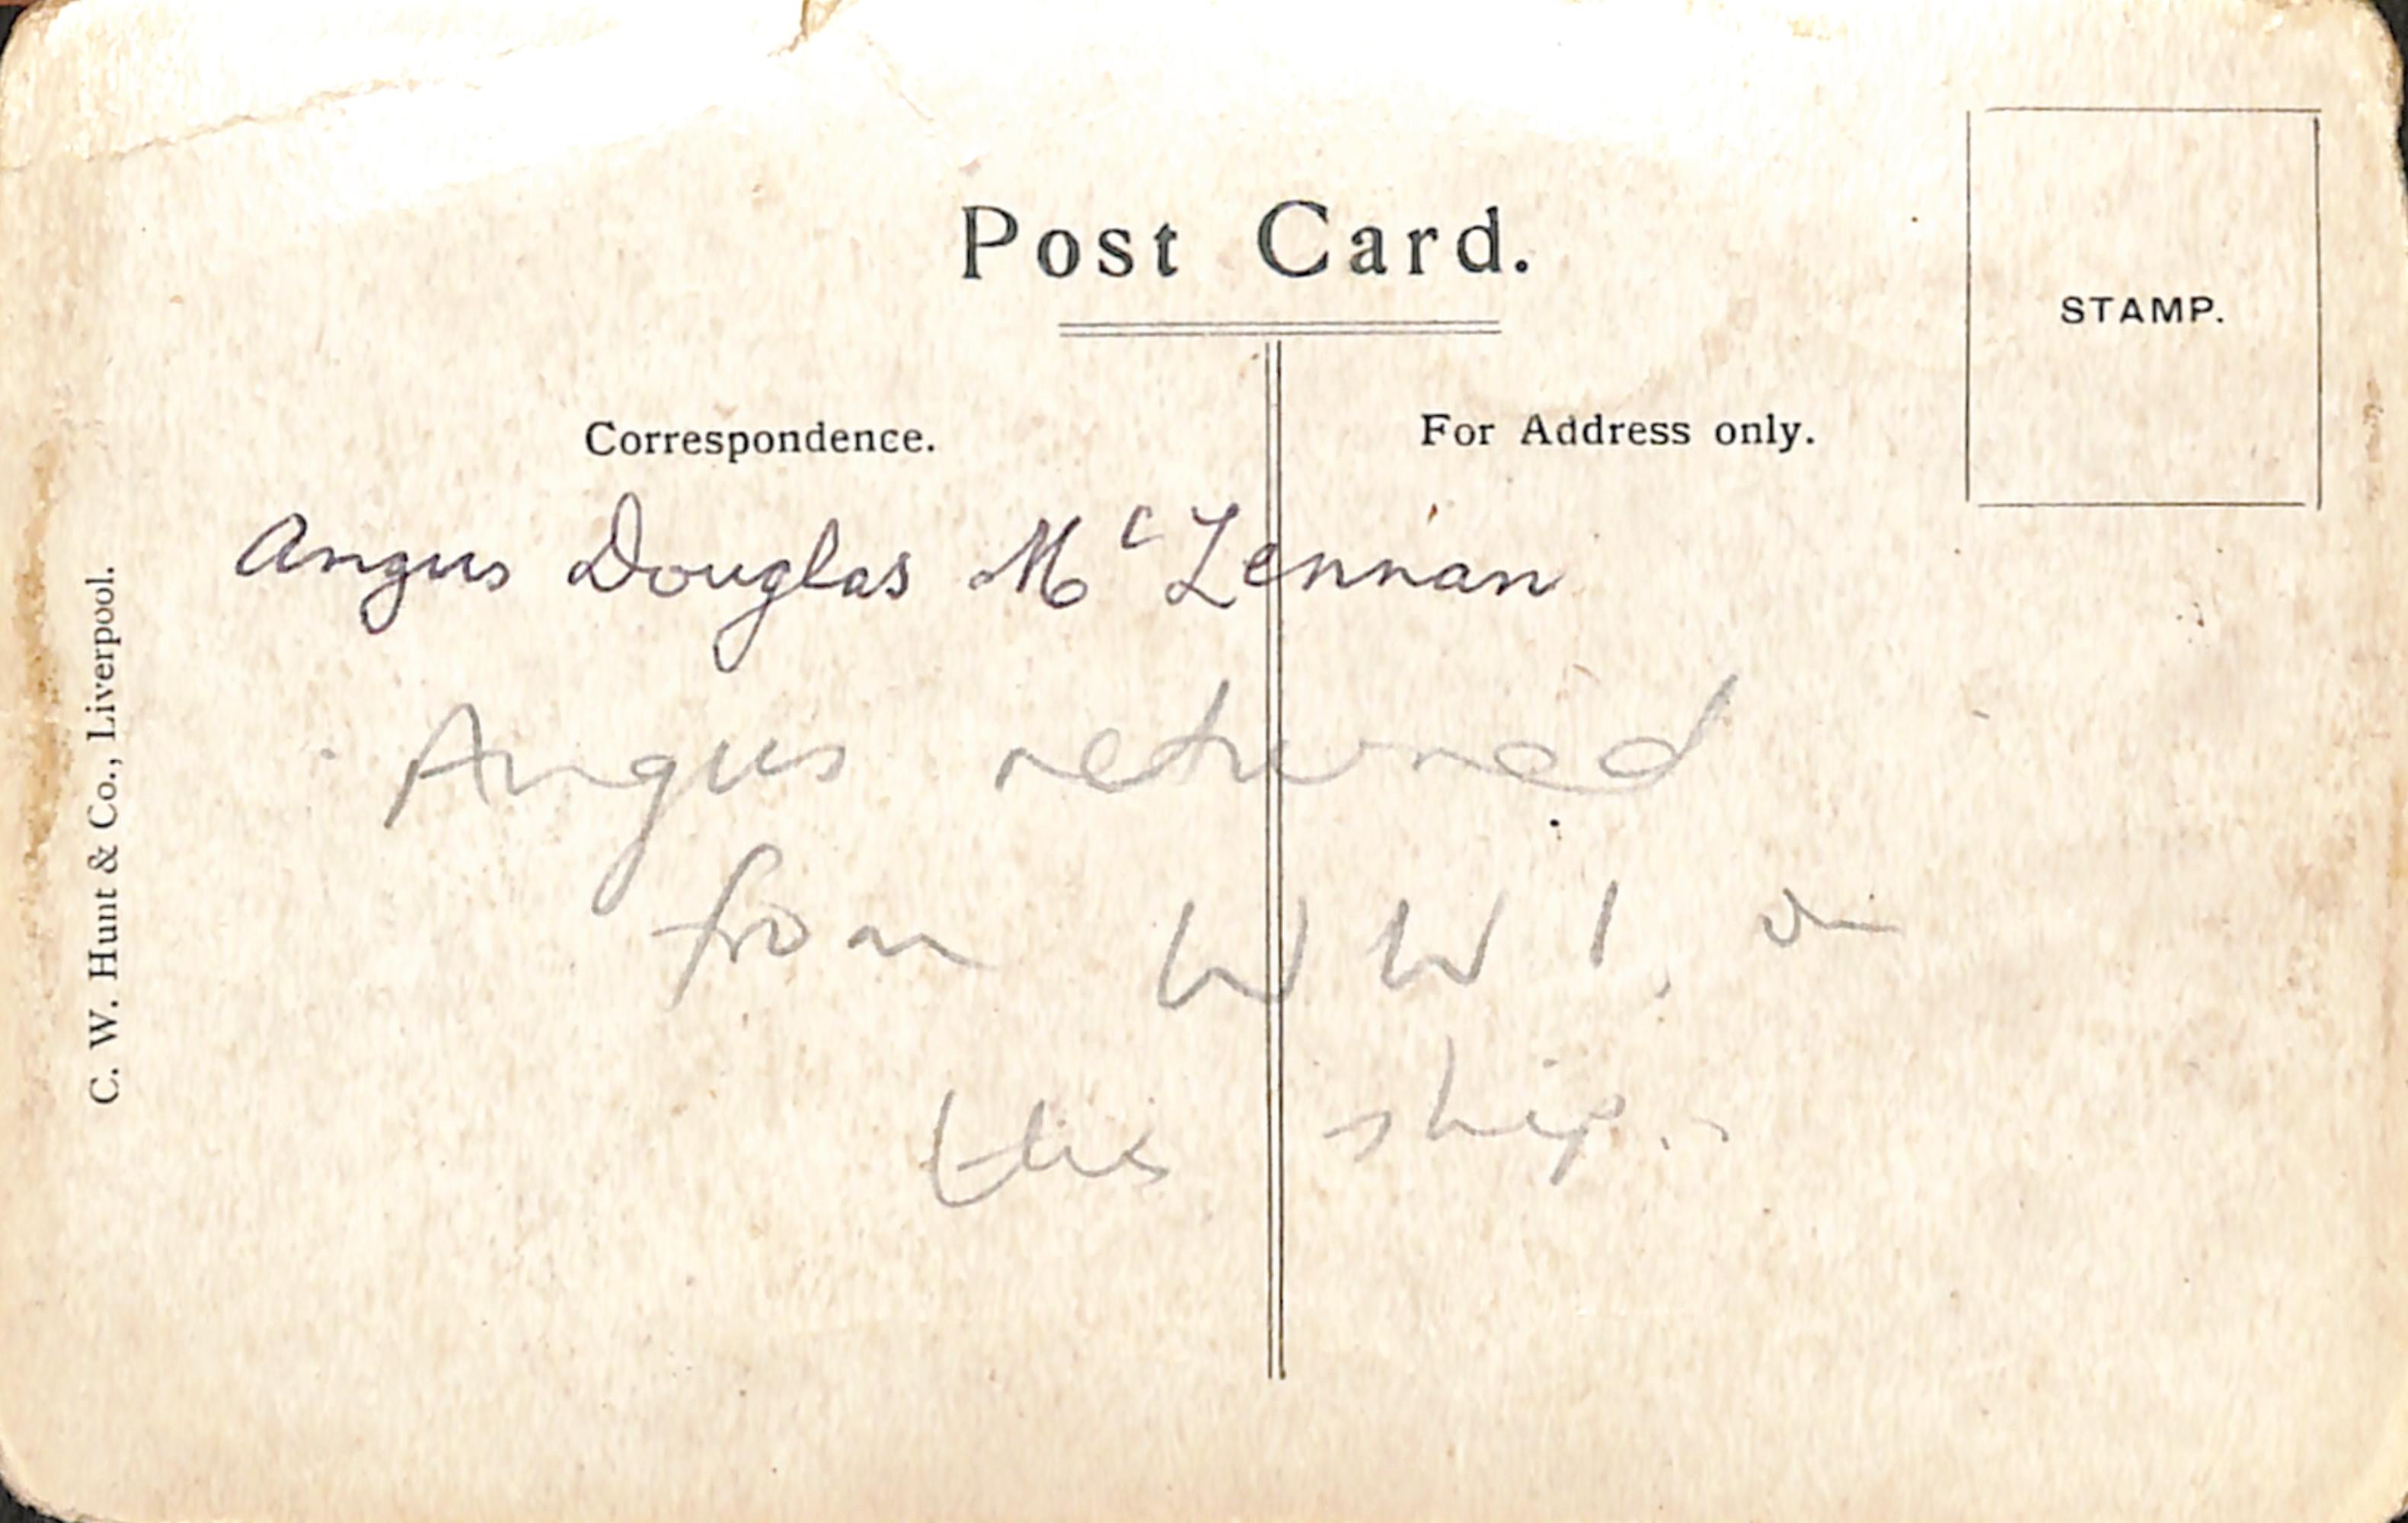 Post Card.
STAMP.
Correspondence.
For Address only.
Angus Douglas McLennan
Angus returned
from WW1. on
this ship.
C. W. Hunt & Co., Liverpool.